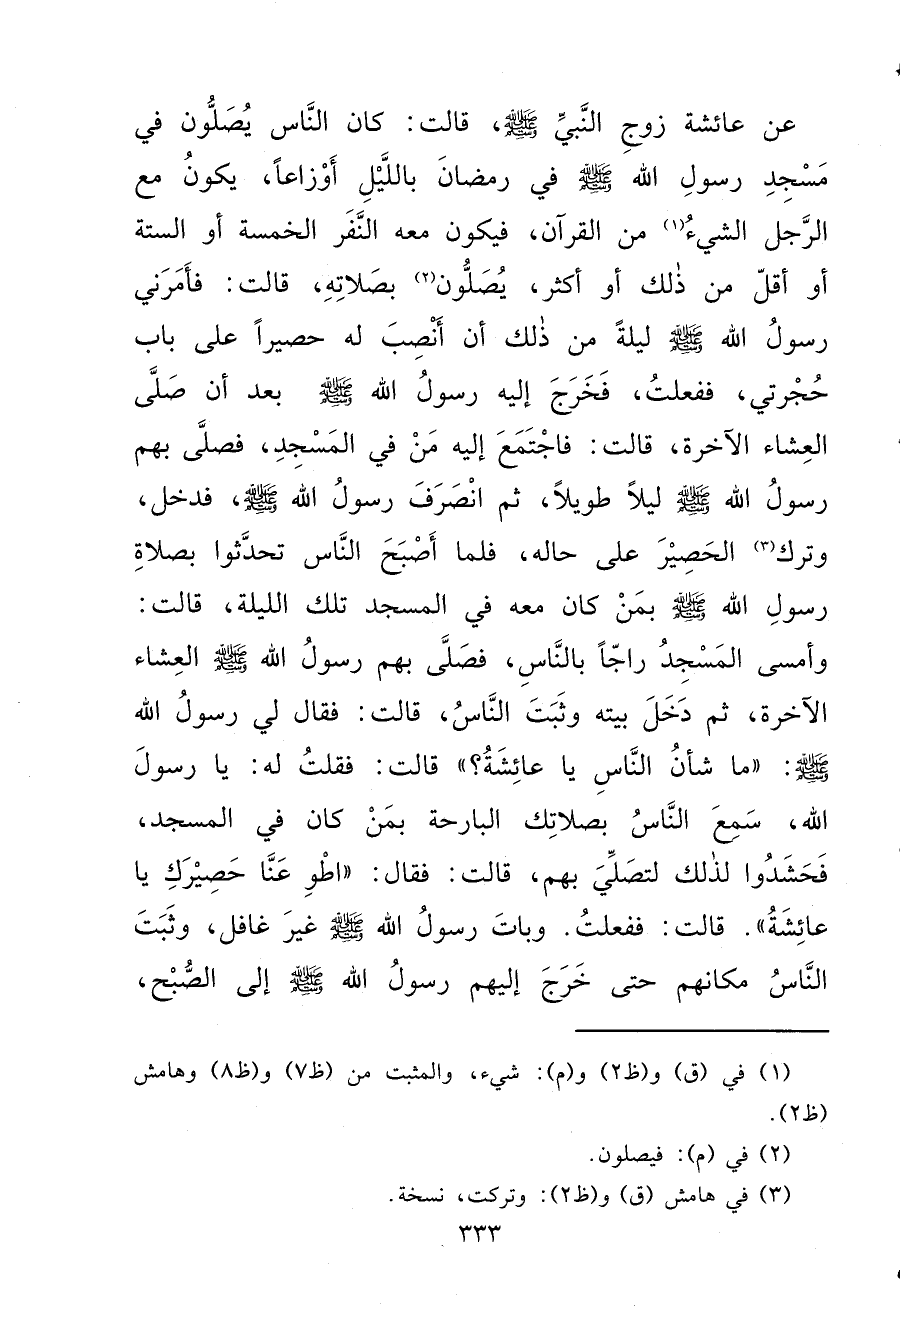 عن عائشة زوجِ النَّبيِّ ﷺ، قالت: كان النَّاس يُصَلُّون في
مَسْجِدِ رسولِ الله ﷺ في رمضانَ باللَّيْلِ أَوْزاعاً، يكونُ مع
الرَّجل الشيءُ(١) من القرآن، فيكون معه النَّفَر الخمسة أو الستة
أو أقلّ من ذٰلك أو أكثر، يُصَلُّون(٢) بصَلاتِهِ، قالت: فأَمَرَني
رسولُ الله ﷺ ليلةً من ذٰلك أن أَنْصِبَ له حصيراً على باب
حُجْرتي، ففعلتُ، فَخَرَجَ إليه رسولُ الله ﷺ بعد أن صَلَّى
العِشاء الآخرة، قالت: فاجْتَمَعَ إليه مَنْ في المَسْجِدِ، فصلَّى بهم
رسولُ الله ﷺ ليلاً طويلاً، ثم انْصَرَفَ رسولُ الله ﷺ، فدخل،
وترك(٣) الحَصِيْرَ على حاله، فلما أَصْبَحَ النَّاس تحدَّثوا بصلاةِ
رسولِ الله ﷺ بمَنْ كان معه في المسجد تلك الليلة، قالت:
وأمسى المَسْجِدُ راجّاً بالنَّاسِ، فصَلَّى بهم رسولُ الله ﷺ العِشاء
الآخرة، ثم دَخَلَ بيته وثَبَتَ النَّاسُ، قالت: فقال لي رسولُ الله
ﷺ: «ما شأنُ النَّاسِ يا عائِشَةُ؟» قالت: فقلتُ له: يا رسولَ
الله، سَمِعَ النَّاسُ بصلاتِك البارحة بمَنْ كان في المسجد،
فَحَشَدُوا لذٰلك لتصَلِّيَ بهم، قالت: فقال: «اطْوِ عَنَّا حَصِيْرَكِ يا
عائِشَةُ». قالت: ففعلتُ. وباتَ رسولُ الله ﷺ غيرَ غافل، وثَبَتَ
النَّاسُ مكانهم حتى خَرَجَ إليهم رسولُ الله ﷺ إلى الصُّبْح،
(١) في (ق) و(ظ٢) و(م): شيء، والمثبت من (ظ٧) و(ظ٨) وهامش
(ظ٢).
(٢) في (م): فيصلون.
(٣) في هامش (ق) و(ظ٢): وتركت، نسخة.
٣٣٣